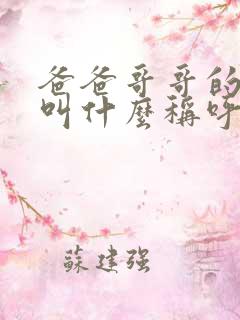 爸爸哥哥的
叫什麼稱呼
蘇建强